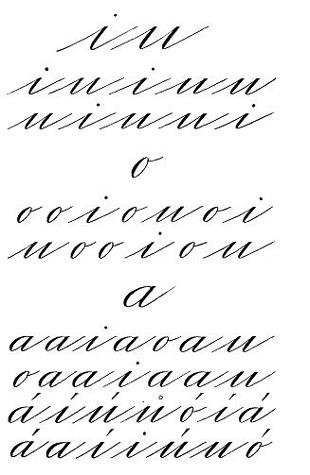 iu
iuiuu
uiuui
o
ooiouoi
uooiou
a
aaiaoau
oaaiaau
áíúůóíá
áaíiúuó